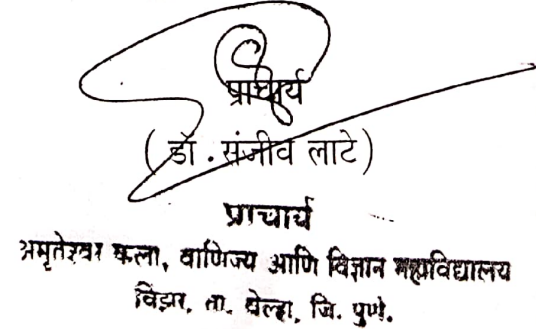 प्राचार्य
(डॉ. संजीव लाटे)
प्राचार्य
अमृतेश्वर कला, वाणिज्य आणि विज्ञान महाविद्यालय
विंझर, ता. वेल्हा, जि. पुणे.